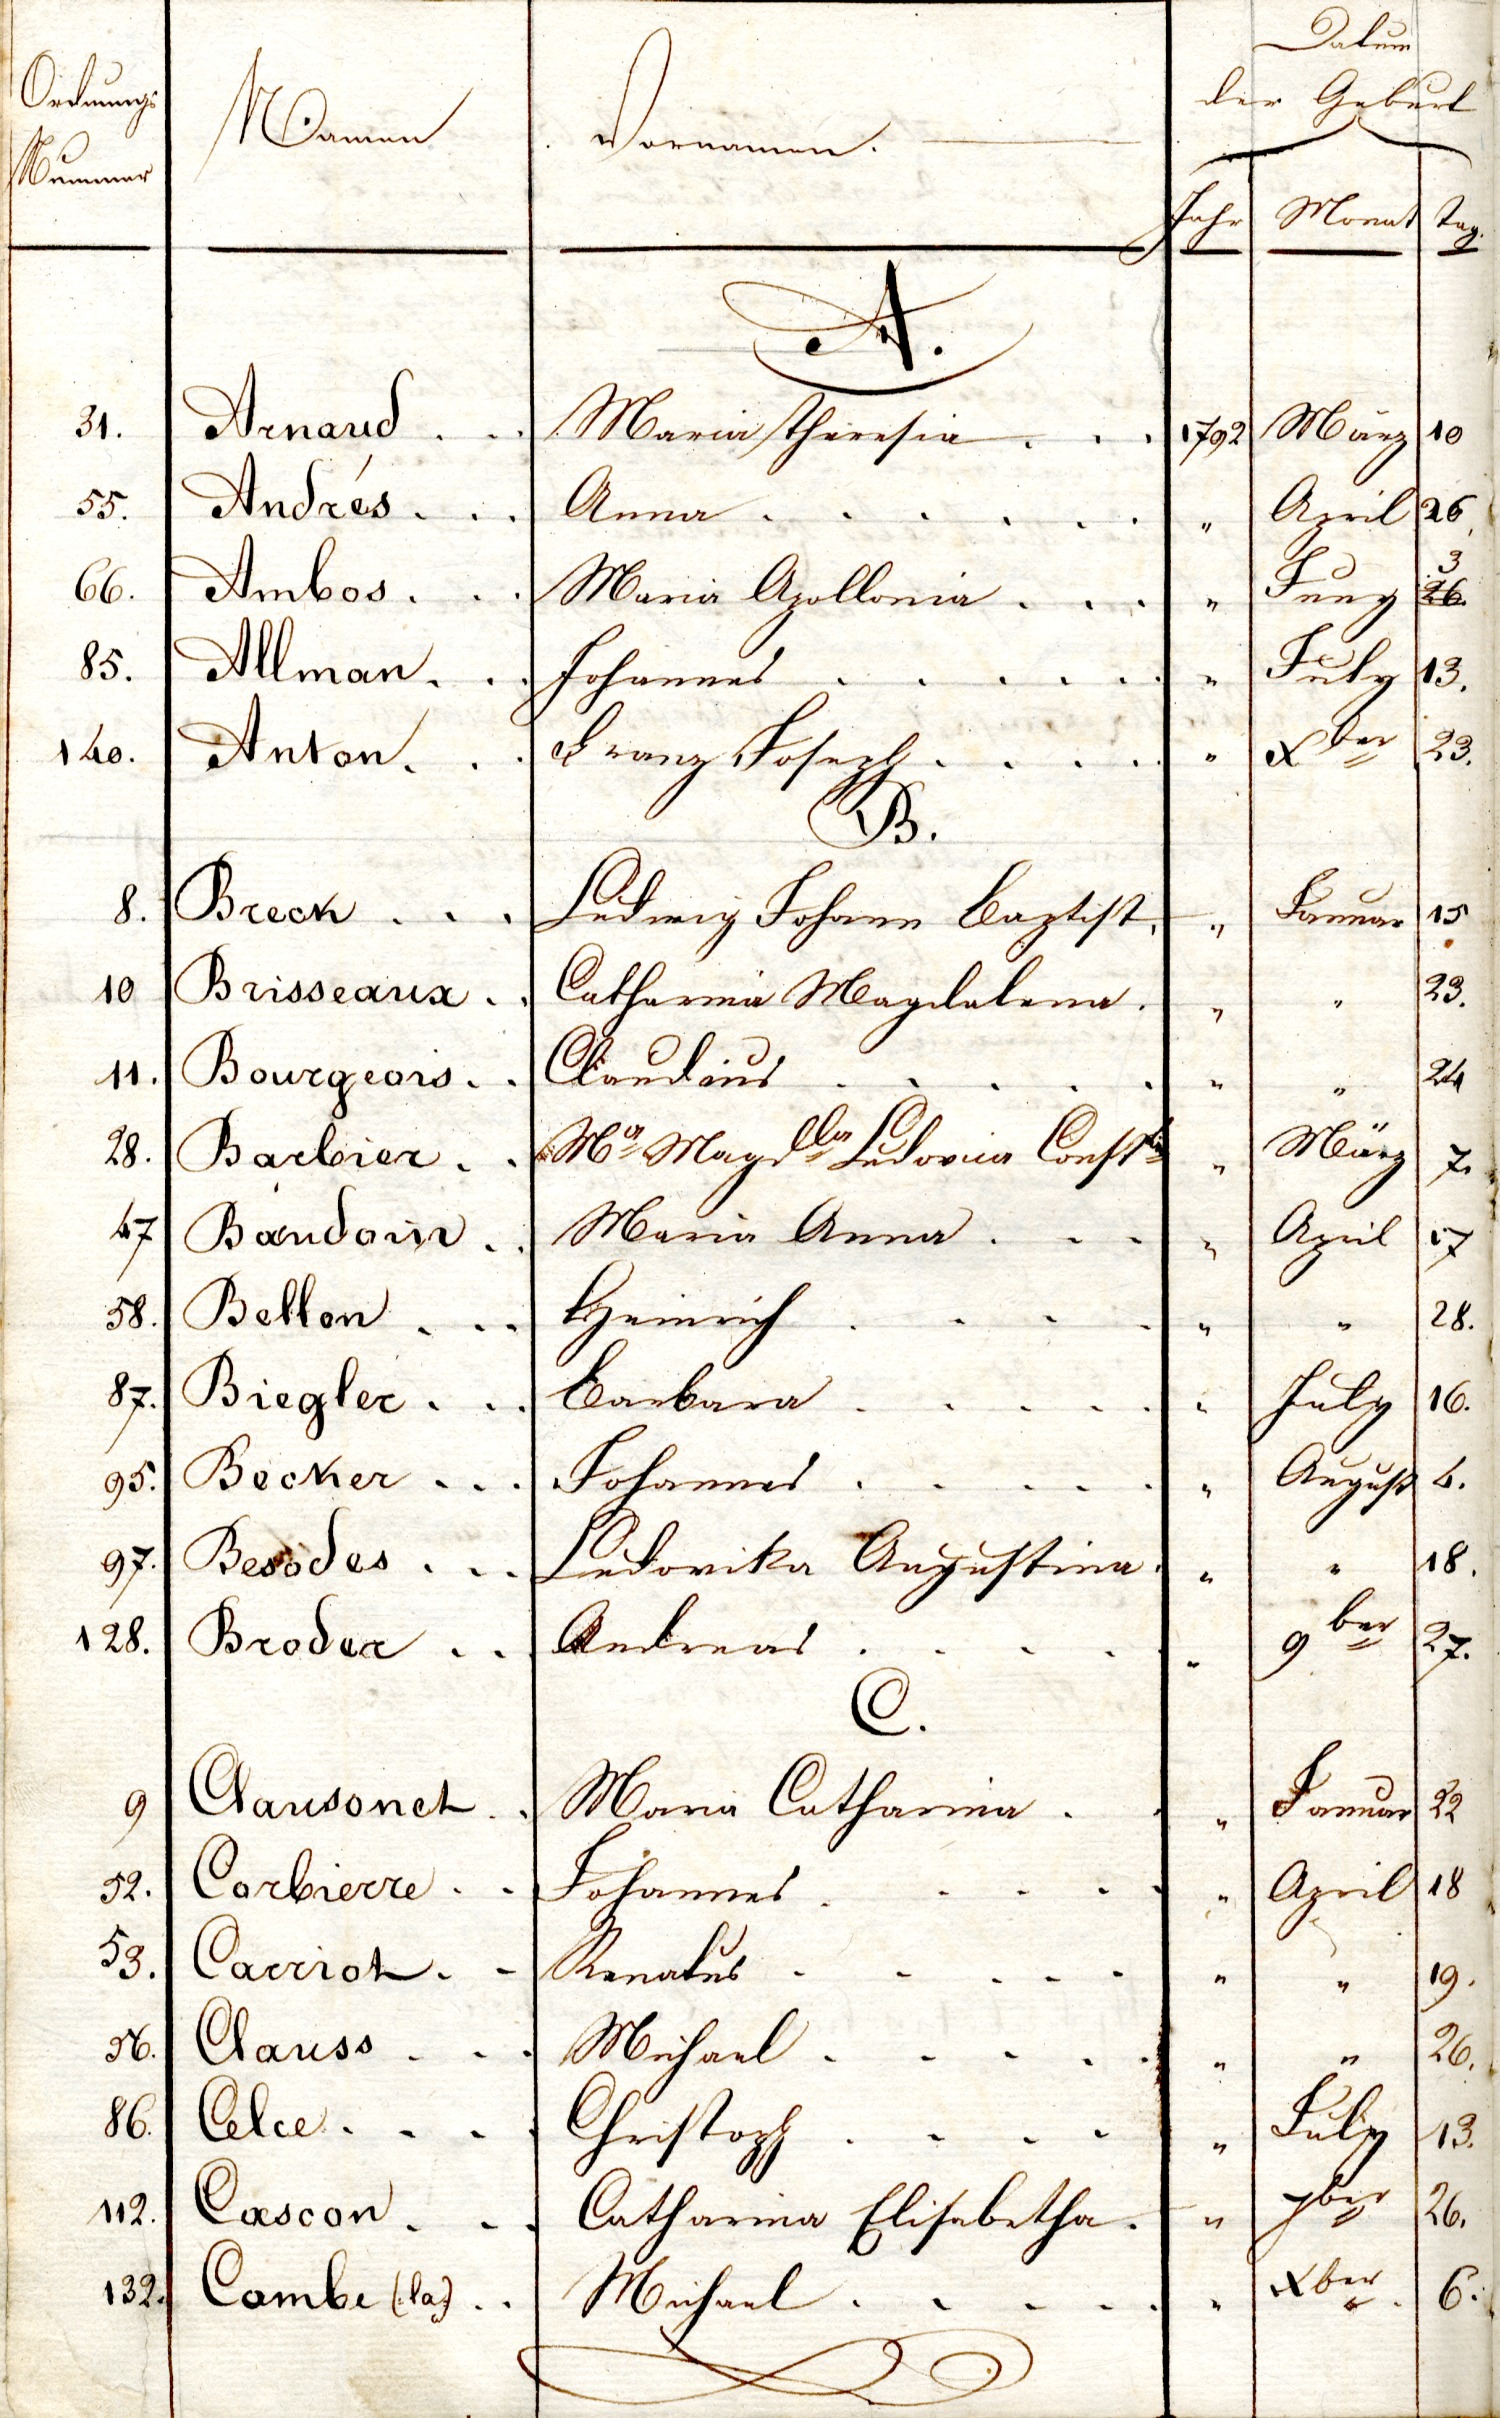 Datum
der Geburt
Ordnungs Nummer Namen Vornamen. Jahr Monat tag.
A.
31. Arnaud . . . Maria Theresia . . . 1792 März 10
55. Andrés . . . Anna . . . . . . " April 26
3
66. Ambos . . . Maria Apollonia . . . " Juny 26.
85. Allman . . . Johannes . . . . . " July 13.
140. Anton . . . Franz Joseph . . . . " Xber 23.
B.
8. Breck . . . Ludwig Johann Baptist. " Januar 15
10 Brisseaux . . Catharina Magdalena . " " 23.
11. Bourgeois . . Claudius . . . . . " " 24
28. Barbier . . Ma Magdlla Ludovica Const " März 7.
47 Baudouin . . Maria Anna . . . " April 17
58. Bellon . . . Heinrich . . . . " " 28.
87. Biegler . . . Barbara . . . . . " July 16.
95. Becker . . . Johannes . . . . . " August 4.
97. Besodes . . . Ludovika Augustina . " " 18.
128. Broder . . Andreas . . . . " 9ber 27.
C.
9 Clausonet . . Maria Catharina . . " Januar 22
52. Corbierre . . Johannes . . . . . " April 18
53. Carriot . . Renatus . . . . . " " 19.
56. Clauss . . . Michael . . . . . " " 26.
86. Celce . . . . Christoph . . . . " July 13.
112. Cascon . . . Catharina Elisabetha . " 7ber 26.
132. Combe (la) . . Michael . . . . . " Xber 6.